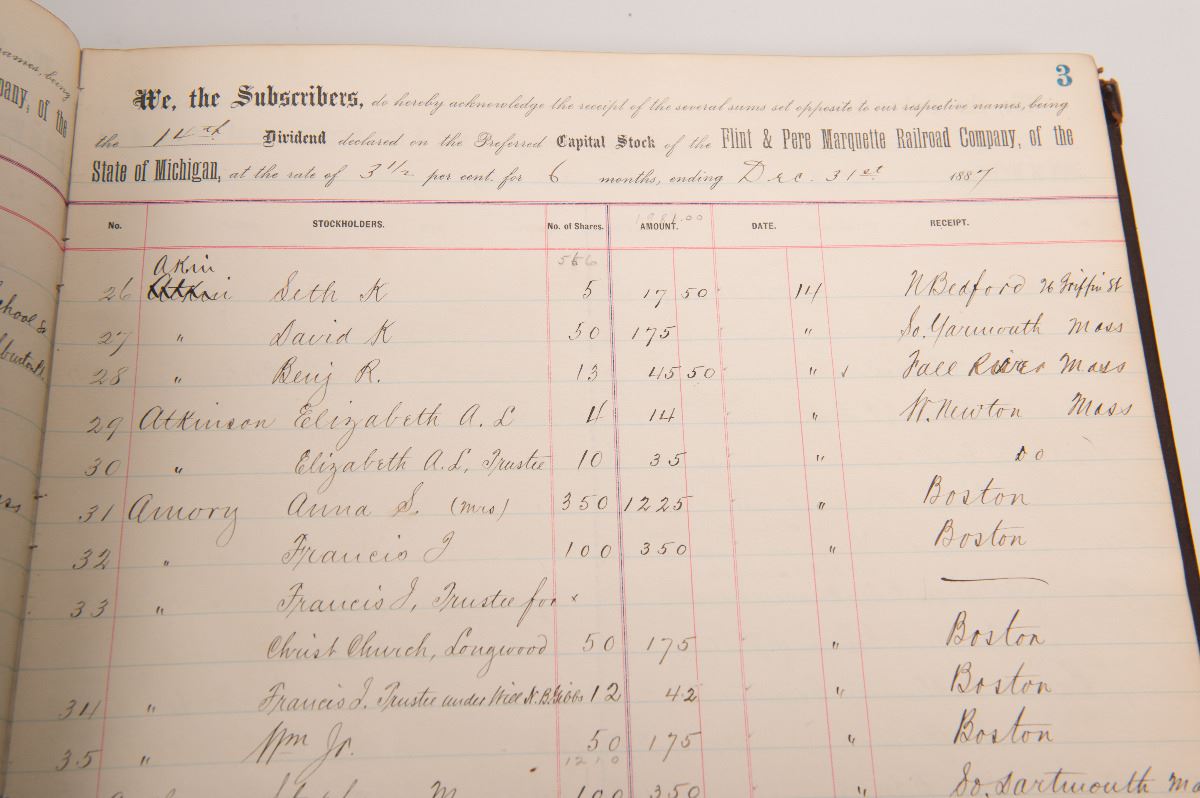 ames, being
pany, of the
3
We, the Subscribers, do hereby acknowledge the receipt of the several sums set opposite to our respective names, being
the 14 Dividend declared on the Preferred Capital Stock of the Flint & Pere Marquette Railroad Company, of the
State of Michigan, at the rate of 3 1/2 per cent. for 6 months, ending Dec. 31st 1887
No. STOCKHOLDERS. No. of Shares. AMOUNT. DATE. RECEIPT.
556
Akin
26 Seth K 5 17 50 14 N Bedford 26 Griffin St
27 " David K 50 175 " So. Yarmouth Mass
28 " Benj R. 13 45 50 " Fall River Mass
29 Atkinson Elizabeth A. L 4 14 " W. Newton Mass
30 " Elizabeth A. L, Trustee 10 35 " do
31 Amory Anna S. (Mrs) 350 1225 " Boston
32 " Francis I 100 350 " Boston
33 " Francis I, Trustee for
Christ Church, Longwood 50 175 " Boston
34 " Francis I. Trustee under Will N. B. Gibbs 12 42 " Boston
35 " Wm Jr. 50 175 " Boston
1210
100 350 " So. Dartmouth Ma